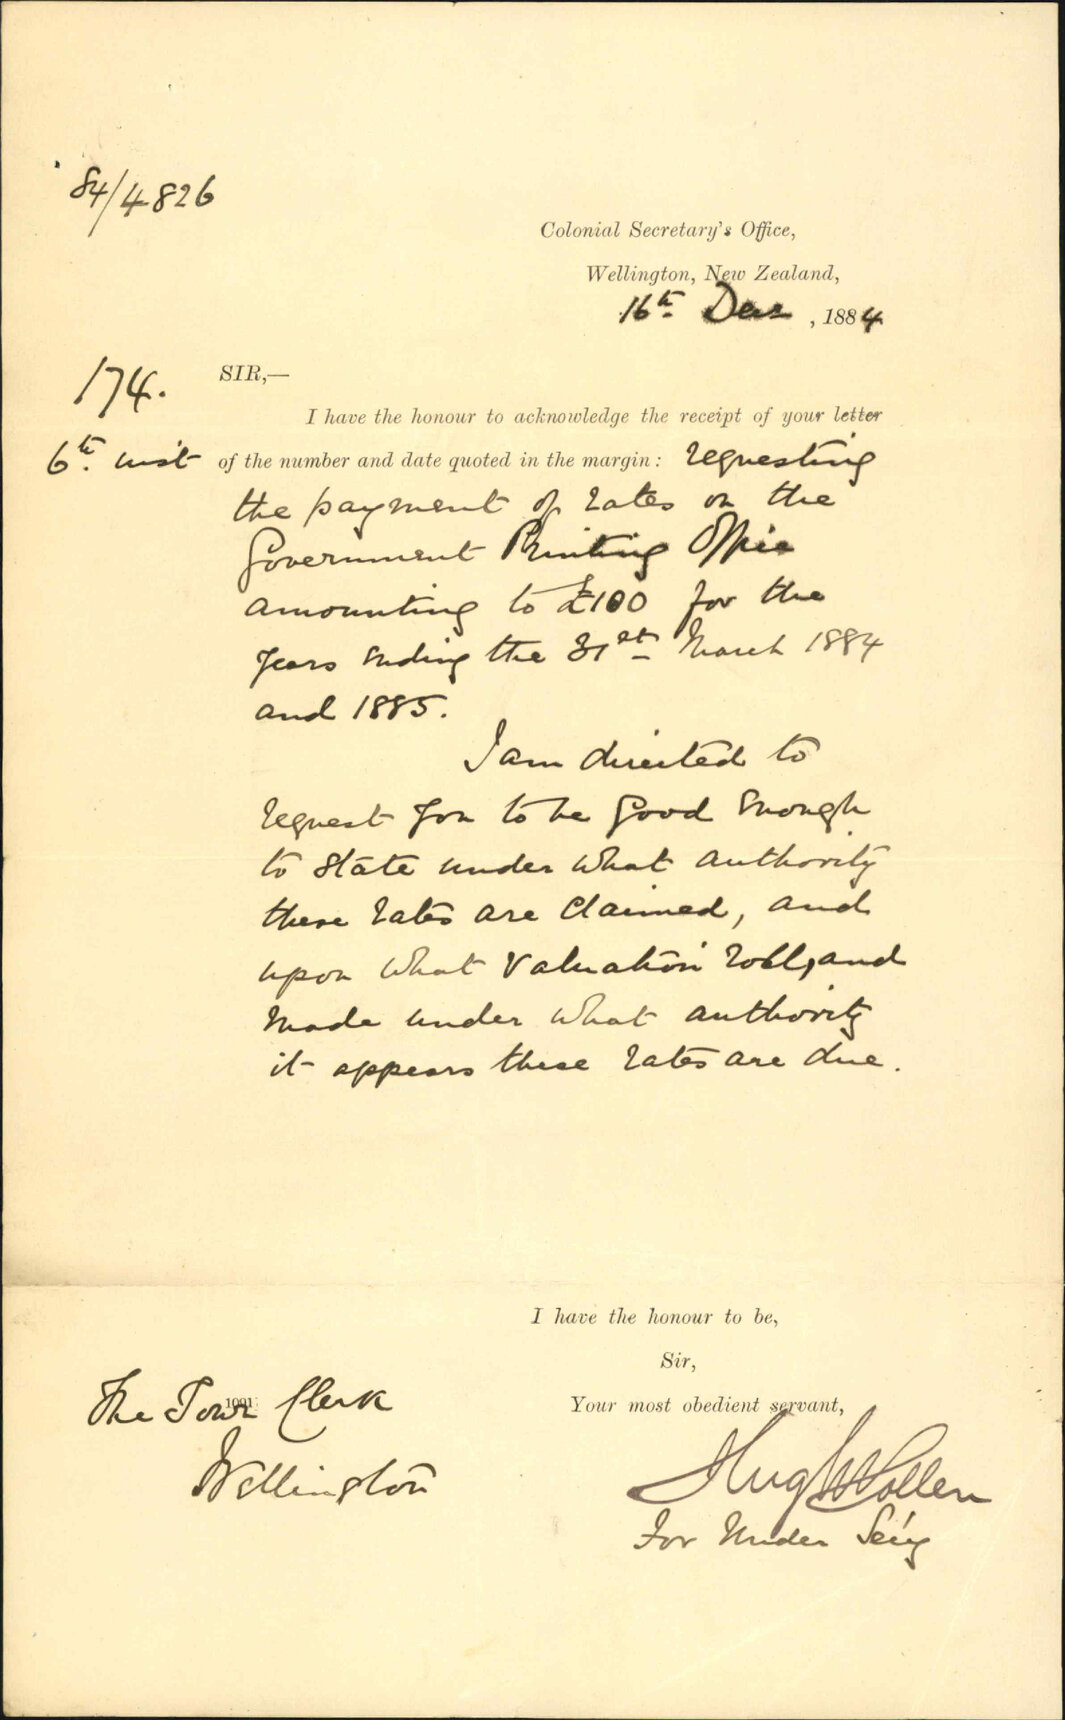 84/4826
Colonial Secretary's Office,
Wellington, New Zealand,
16th Dec, 1884
174.
SIR,—
I have the honour to acknowledge the receipt of your letter
6th inst
of the number and date quoted in the margin: requesting
the payment of rates on the
Government Printing Office
amounting to £100 for the
years ending the 31st March 1884
and 1885.
I am directed to
request you to be good enough
to state under what authority
these rates are claimed, and
upon what Valuation roll, and
made under what authority
it appears these rates are due.
I have the honour to be,
Sir,
Your most obedient servant,
The Town Clerk
1091
Wellington
Hugh Pollen
For Under Sec'y